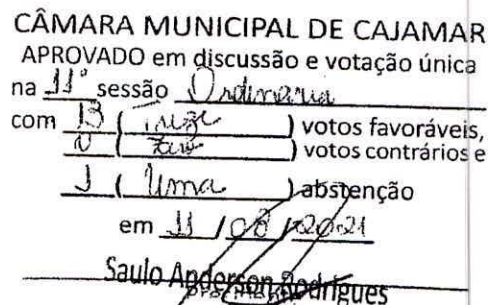 CÂMARA MUNICIPAL DE CAJAMAR
APROVADO em discussão e votação única
na 11ª sessão Ordinária
com 13 ( treze ) votos favoráveis,
0 ( ) votos contrários e
1 ( Uma ) abstenção
em 11 / 08 / 2021
Saulo Anderson Rodrigues